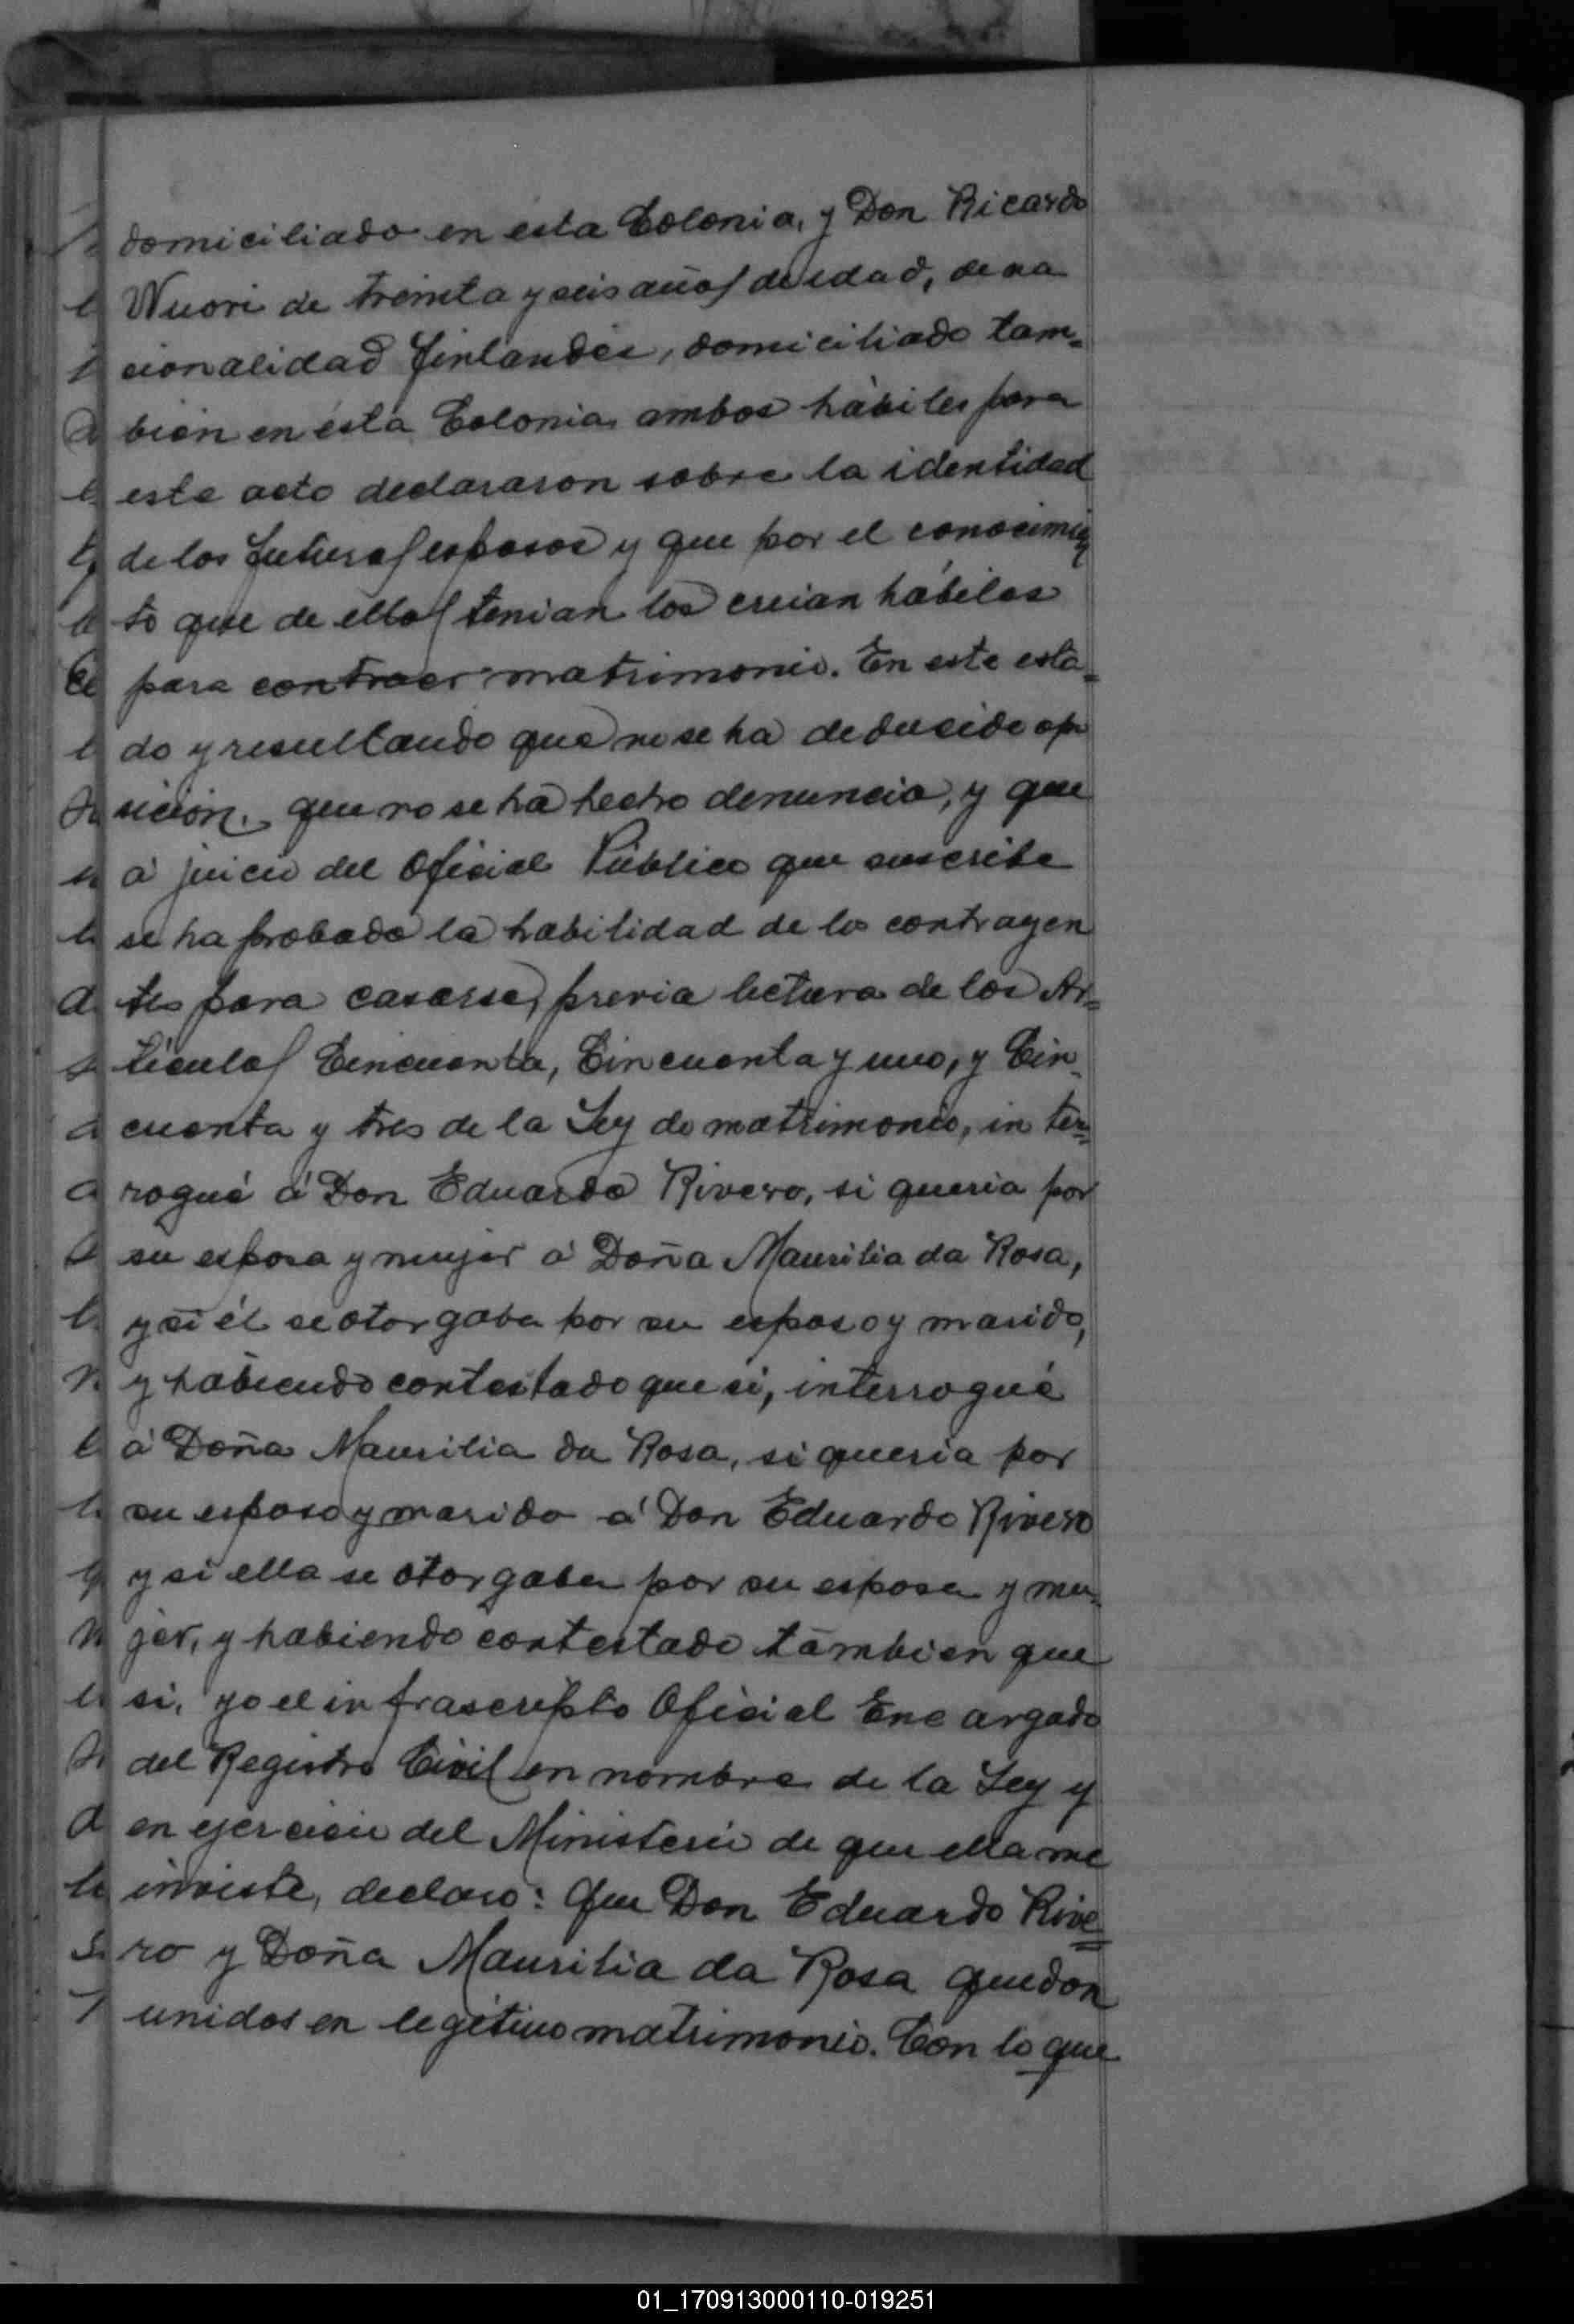 domiciliado en esta Colonia, y Don Ricardo
Wuori de treinta y seis años de edad, de na
cionalidad finlandés, domiciliado tam=
bién en ésta Colonia, ambos hábiles para
este acto declararon sobre la identidad
de los futuros esposos y que por el conocimien
to que de ellos tenian los creian hábiles
para contraer matrimonio. En este esta=
do y resultando que no se ha deducido opo
sición, que no se ha hecho denuncia, y que
á juicio del Oficial Público que suscribe
se ha probado la habilidad de los contrayen
tes para casarse, previa lectura de los Ar=
tículos Cincuenta, Cincuenta y uno, y Cin=
cuenta y tres de la Ley de matrimonio, inter=
rogué á Don Eduardo Rivero, si queria por
su esposa y mujer á Doña Maurilia da Rosa,
y si él se otorgaba por su esposo y marido,
y habiendo contestado que si, interrogué
á Doña Maurilia da Rosa, si queria por
su esposo y marido á Don Eduardo Rivero
y si ella se otorgaba por su esposa y mu=
jer, y habiendo contestado tambien que
si, yo el infrascripto Oficial Encargado
del Registro Civil en nombre de la Ley y
en ejercicio del Ministerio de que ella me
inviste, declaro: Que Don Eduardo Rive=
ro y Doña Maurilia da Rosa quedan
unidos en legítimo matrimonio. Con lo que
01_170913000110-019251